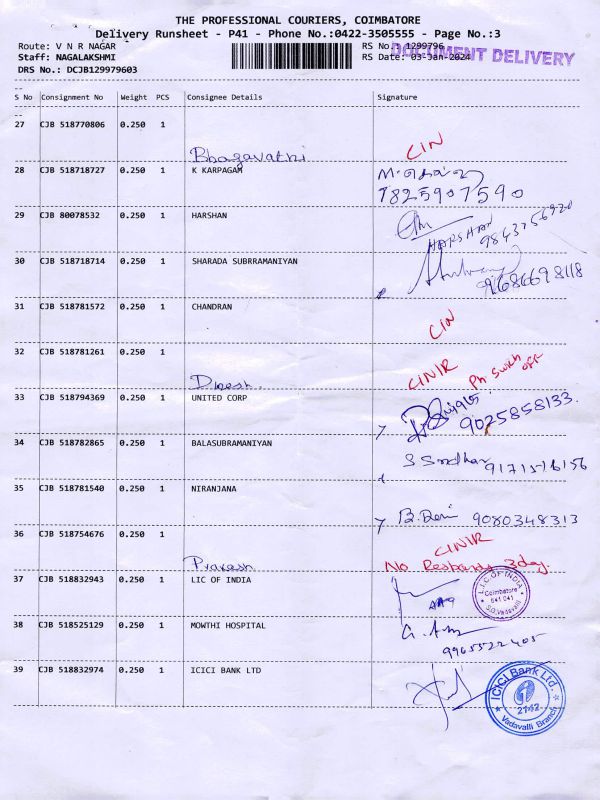 THE PROFESSIONAL COURIERS, COIMBATORE
Delivery Runsheet - P41 - Phone No.:0422-3505555 - Page No.:3
Route: V N R NAGAR
RS No.: 1299796
DOCUMENT DELIVERY
Staff: NAGALAKSHMI
RS Date: 03-Jan-2024
DRS No.: DCJB129979603
S No Consignment No Weight PCS Consignee Details Signature
27 CJB 518770806 0.250 1
Bhagavathi CIN
28 CJB 518718727 0.250 1 K KARPAGAM
7825907590
29 CJB 80078532 0.250 1 HARSHAN
HARSHAN 9843756920
30 CJB 518718714 0.250 1 SHARADA SUBRRAMANIYAN
9686698118
31 CJB 518781572 0.250 1 CHANDRAN
CIN
32 CJB 518781261 0.250 1
Dinesh. CINIR Ph. Swich off
33 CJB 518794369 0.250 1 UNITED CORP
9025858133.
34 CJB 518782865 0.250 1 BALASUBRAMANIYAN
S Sridhar 9171516156
35 CJB 518781540 0.250 1 NIRANJANA
B. Devi 9080348313
36 CJB 518754676 0.250 1
CINIR
Prakash No Respands 3 day.
37 CJB 518832943 0.250 1 LIC OF INDIA
L.I.C OF INDIA
Coimbatore
641 041
S.O, Vadavalli
38 CJB 518525129 0.250 1 MOWTHI HOSPITAL
9965522405
39 CJB 518832974 0.250 1 ICICI BANK LTD
ICICI Bank Ltd.
2142
Vadavalli Branch